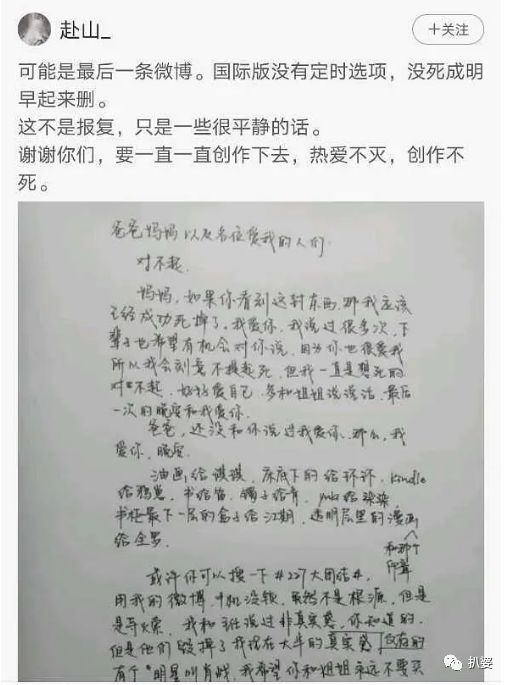 赴山_
＋关注
可能是最后一条微博。国际版没有定时选项，没死成明
早起来删。
这不是报复，只是一些很平静的话。
谢谢你们，要一直一直创作下去，热爱不灭，创作不
死。
爸爸妈妈以及各位爱我的人们
对不起.
妈妈，如果你看到这封东西，那我应该
已经成功死掉了。我爱你，我说过很多次，下
辈子也希望有机会对你说，因为你也很爱我
所以我会刻意不提起死，但我一直是想死的
对不起，好好爱自己，多和姐姐说说话，最后
一次的晚安和我爱你.
爸爸，还没和你说过我爱你，那么，我
爱你，晚安.
油画给谈谈，床底下的给环环，kindle
给，书给，镯子给，给染染
书柜最下一层的盒子给江期，透明层里的漫画
和那个
给全罗.
或许你可以搜一下#227大团结#，
用我的微博，手机没锁，虽然不是根源，但是
是导火索，我和班说过非真实感，你知道的，
但是他们毁掉了我现在大半的真实感
有个"明星叫肖战，我希望你和姐姐永远不要买
扒婆